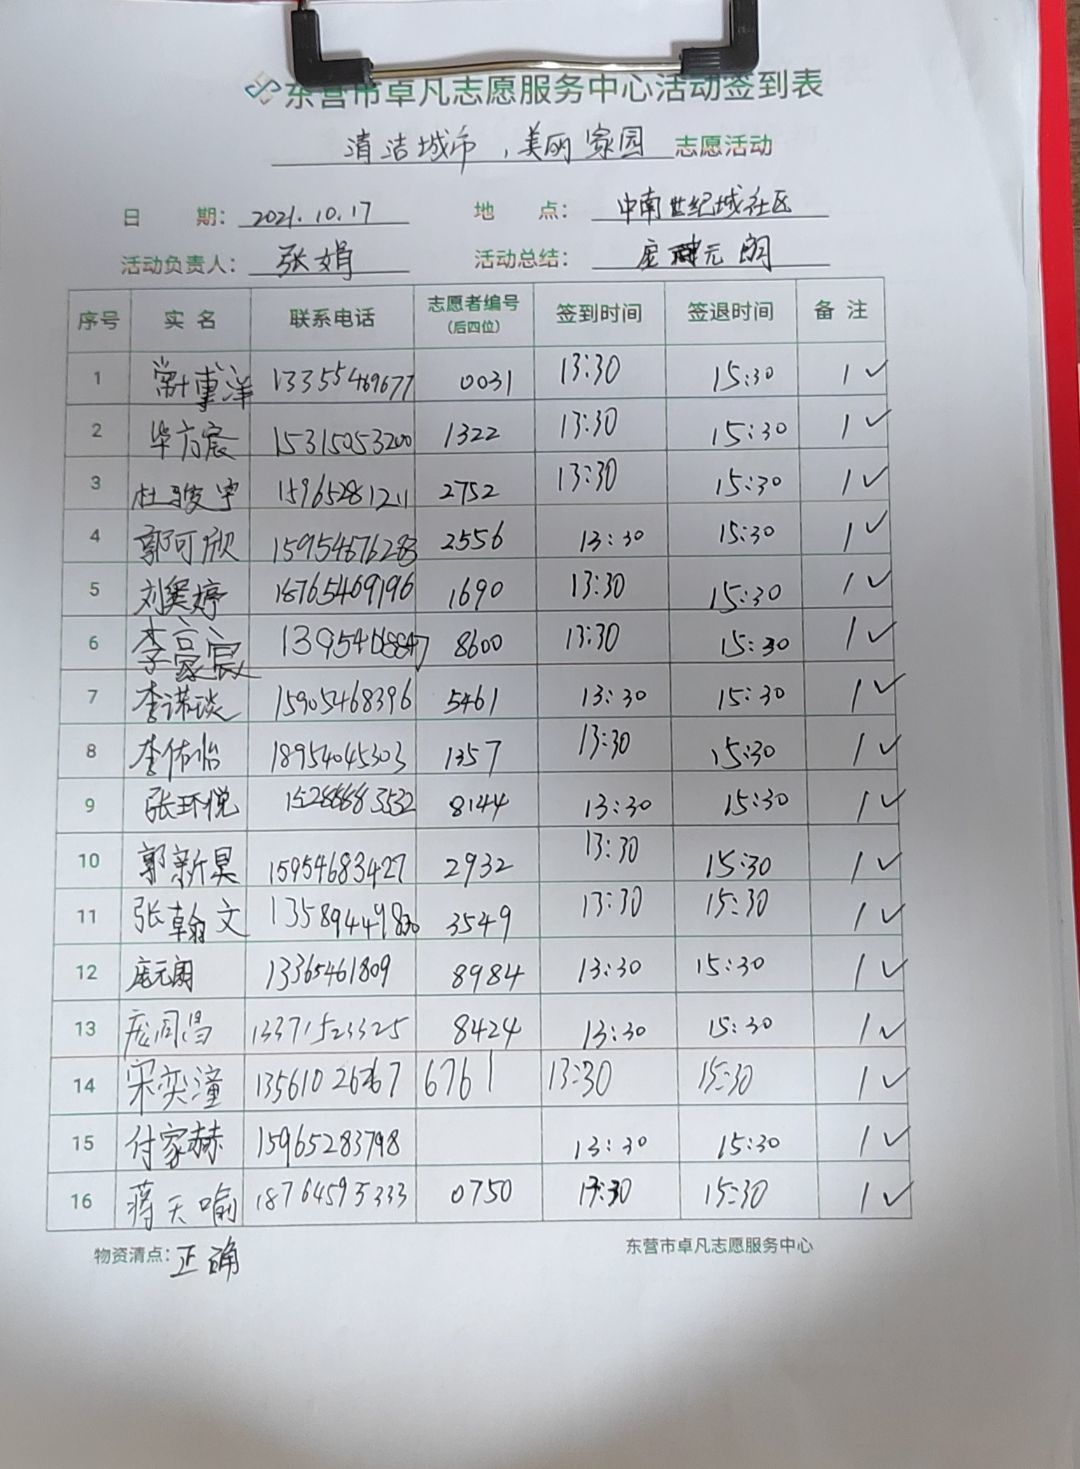 东营市卓凡志愿服务中心活动签到表
清洁城市，美丽家园 志愿活动
日 期： 2021.10.17 地 点： 中南世纪城社区
活动负责人： 张娟 活动总结： 庞元朗
序号 实名 联系电话 志愿者编号（后四位） 签到时间 签退时间 备注
1 博洋 13355469677 0031 13:30 15:30 1✓
2 毕方宸 15315053200 1322 13:30 15:30 1✓
3 杜骏宇 15965281211 2752 13:30 15:30 1✓
4 郭可欣 15954676283 2556 13:30 15:30 1✓
5 刘奕婷 18765469196 1690 13:30 15:30 1✓
6 李豪宸 13954668847 8600 13:30 15:30 1✓
7 李诺谈 15905468396 5461 13:30 15:30 1✓
8 李佑怡 18954045303 1357 13:30 15:30 1✓
9 张环悦 8144 13:30 15:30 1✓
10 郭新昊 15954683427 2932 13:30 15:30 1✓
11 张翰文 13589449830 3549 13:30 15:30 1✓
12 庞元朗 13365461809 8984 13:30 15:30 1✓
13 庞同昌 13371523325 8424 13:30 15:30 1✓
14 宋奕潼 13561026267 6761 13:30 15:30 1✓
15 付家赫 15965283798 13:30 15:30 1✓
16 蒋天喻 18764595333 0750 13:30 15:30 1✓
物资清点：正确 东营市卓凡志愿服务中心